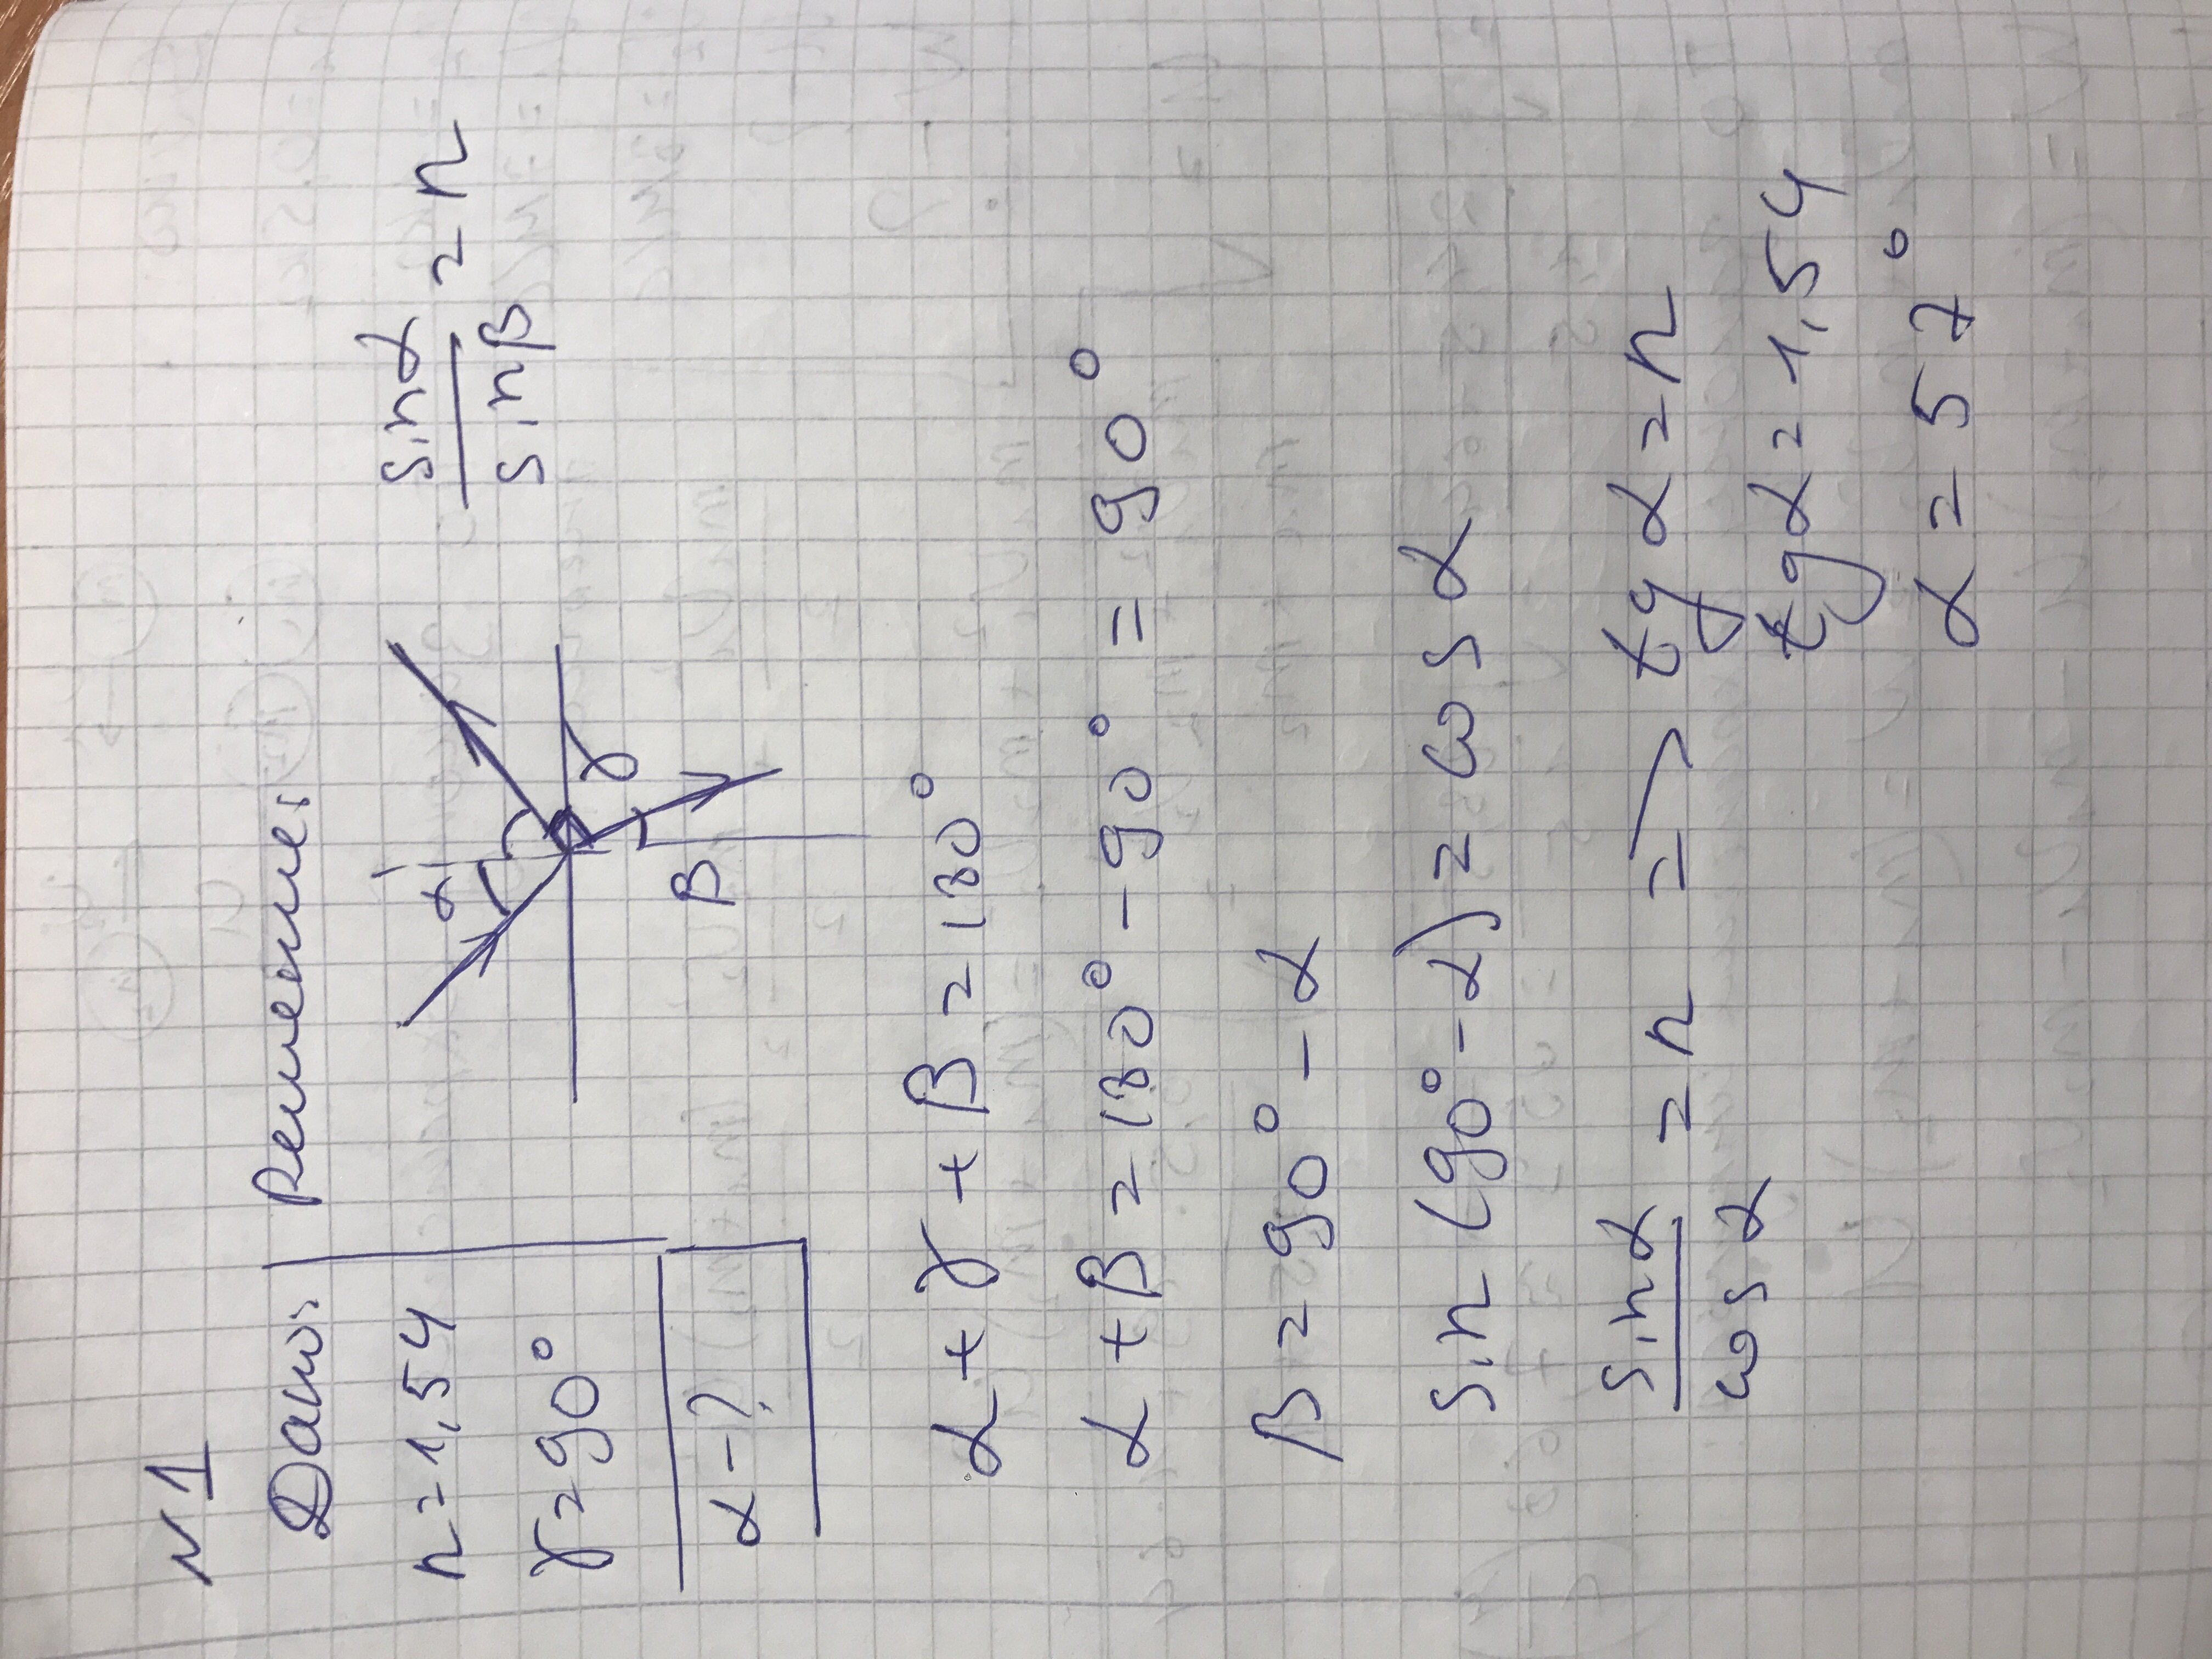 N1
Дано:
n=1,54
γ=90°
α-?
Решение:
α α'
γ
β
sinα/sinβ = n
α+γ+β=180°
α+β=180°-90°=90°
β=90°-α
sin(90°-α)=cosα
sinα/cosα = n => tgα=n
tgα=1,54
α=57°